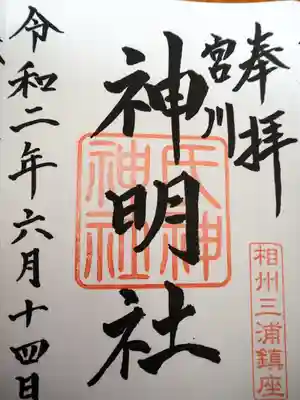 奉拝
宮川
神明社
氏神
神社
相州三浦鎮座
令和二年六月十四日